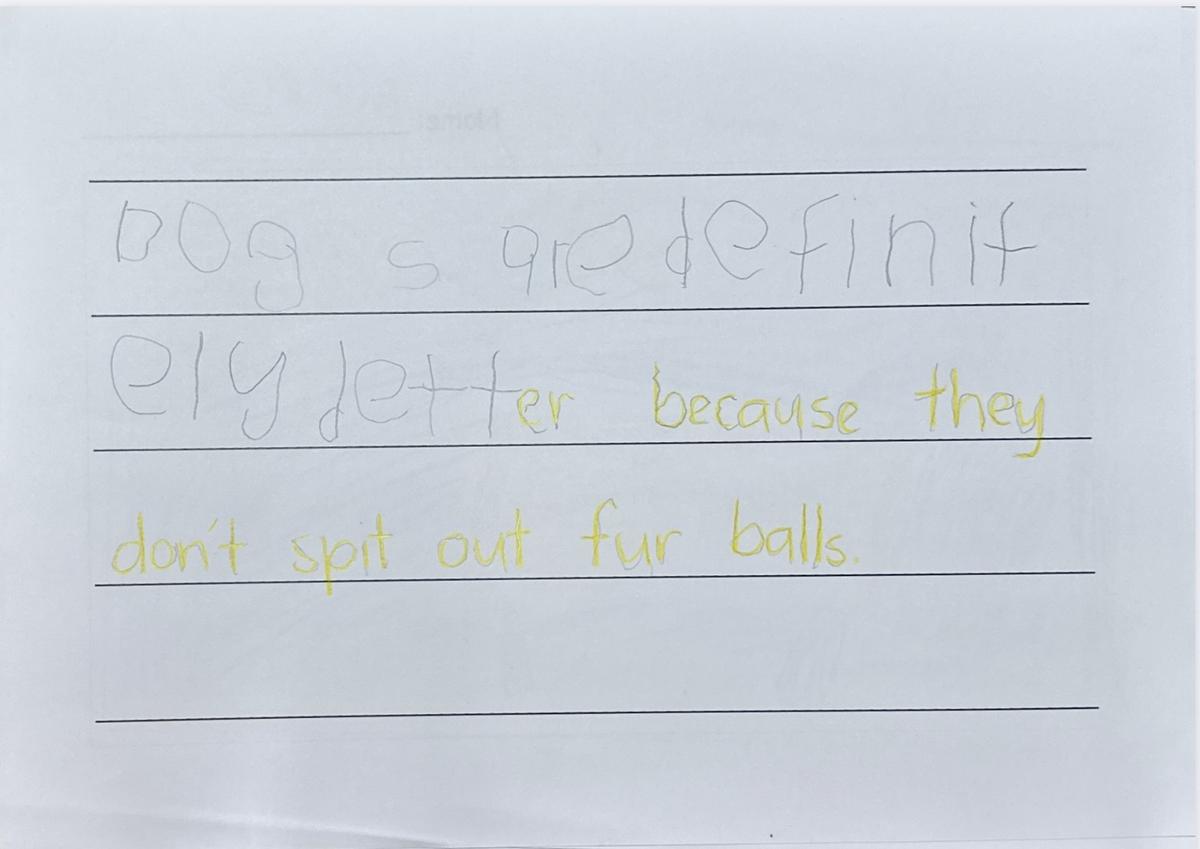 Dog s are definit
ely detter because they
don't spit out fur balls.